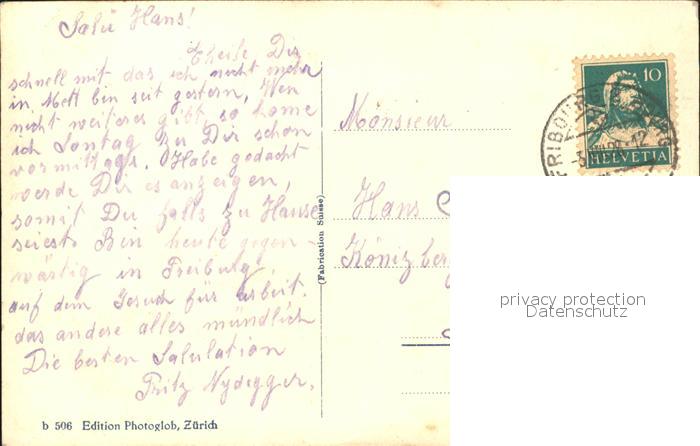 Salü Hans!
Theile Dir
schnell mit das ich nicht mehr
in Mett bin seit gestern. Wen
nicht weiteres gibt so kome
ich Sontag zu Dir schon
vormittags. Habe gedacht
werde Dir es anzeigen,
somit Du falls zu Hause
seiest. Bin heute gegen-
wärtig in Freiburg,
auf dem Gesuch für arbeit.
das andere alles mündlich
Die besten Salutation
Fritz Nydegger.
b 506 Edition Photoglob, Zürich
(Fabrication Suisse)
Monsieur
Hans
Könizber
10
HELVETIA
FRIBOURG
privacy protection
Datenschutz